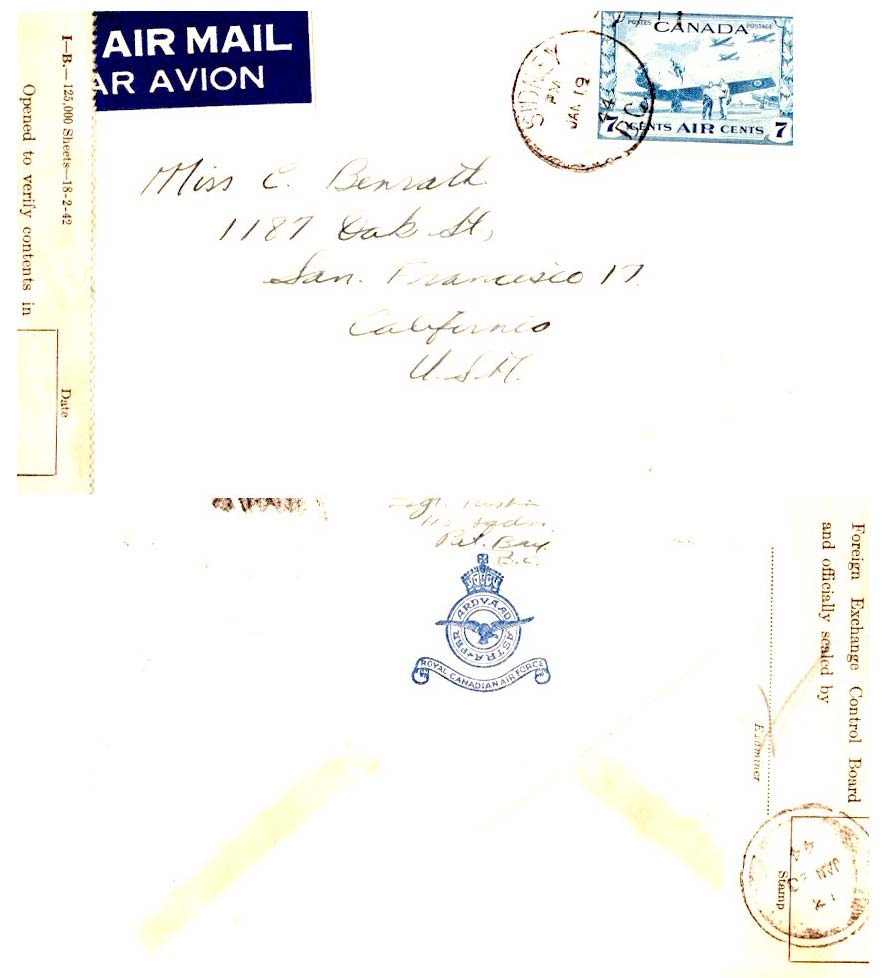 AIR MAIL
AR AVION
I—B.—125,000 Sheets—18-2-42
Opened to verify contents in
Date
SIDNEY
PM
JAN 19
44
B.C.
POSTES POSTAGE
CANADA
7 CENTS AIR CENTS 7
Miss C. Benrath
1187 Oak St,
San. Francisco 17.
California
U.S.A.
Sgt.
Pat. Bay.
B.C.
PER ARDVA AD ASTRA
ROYAL CANADIAN AIR FORCE
Foreign Exchange Control Board
and officially sealed by
Examiner
Stamp
JAN
44